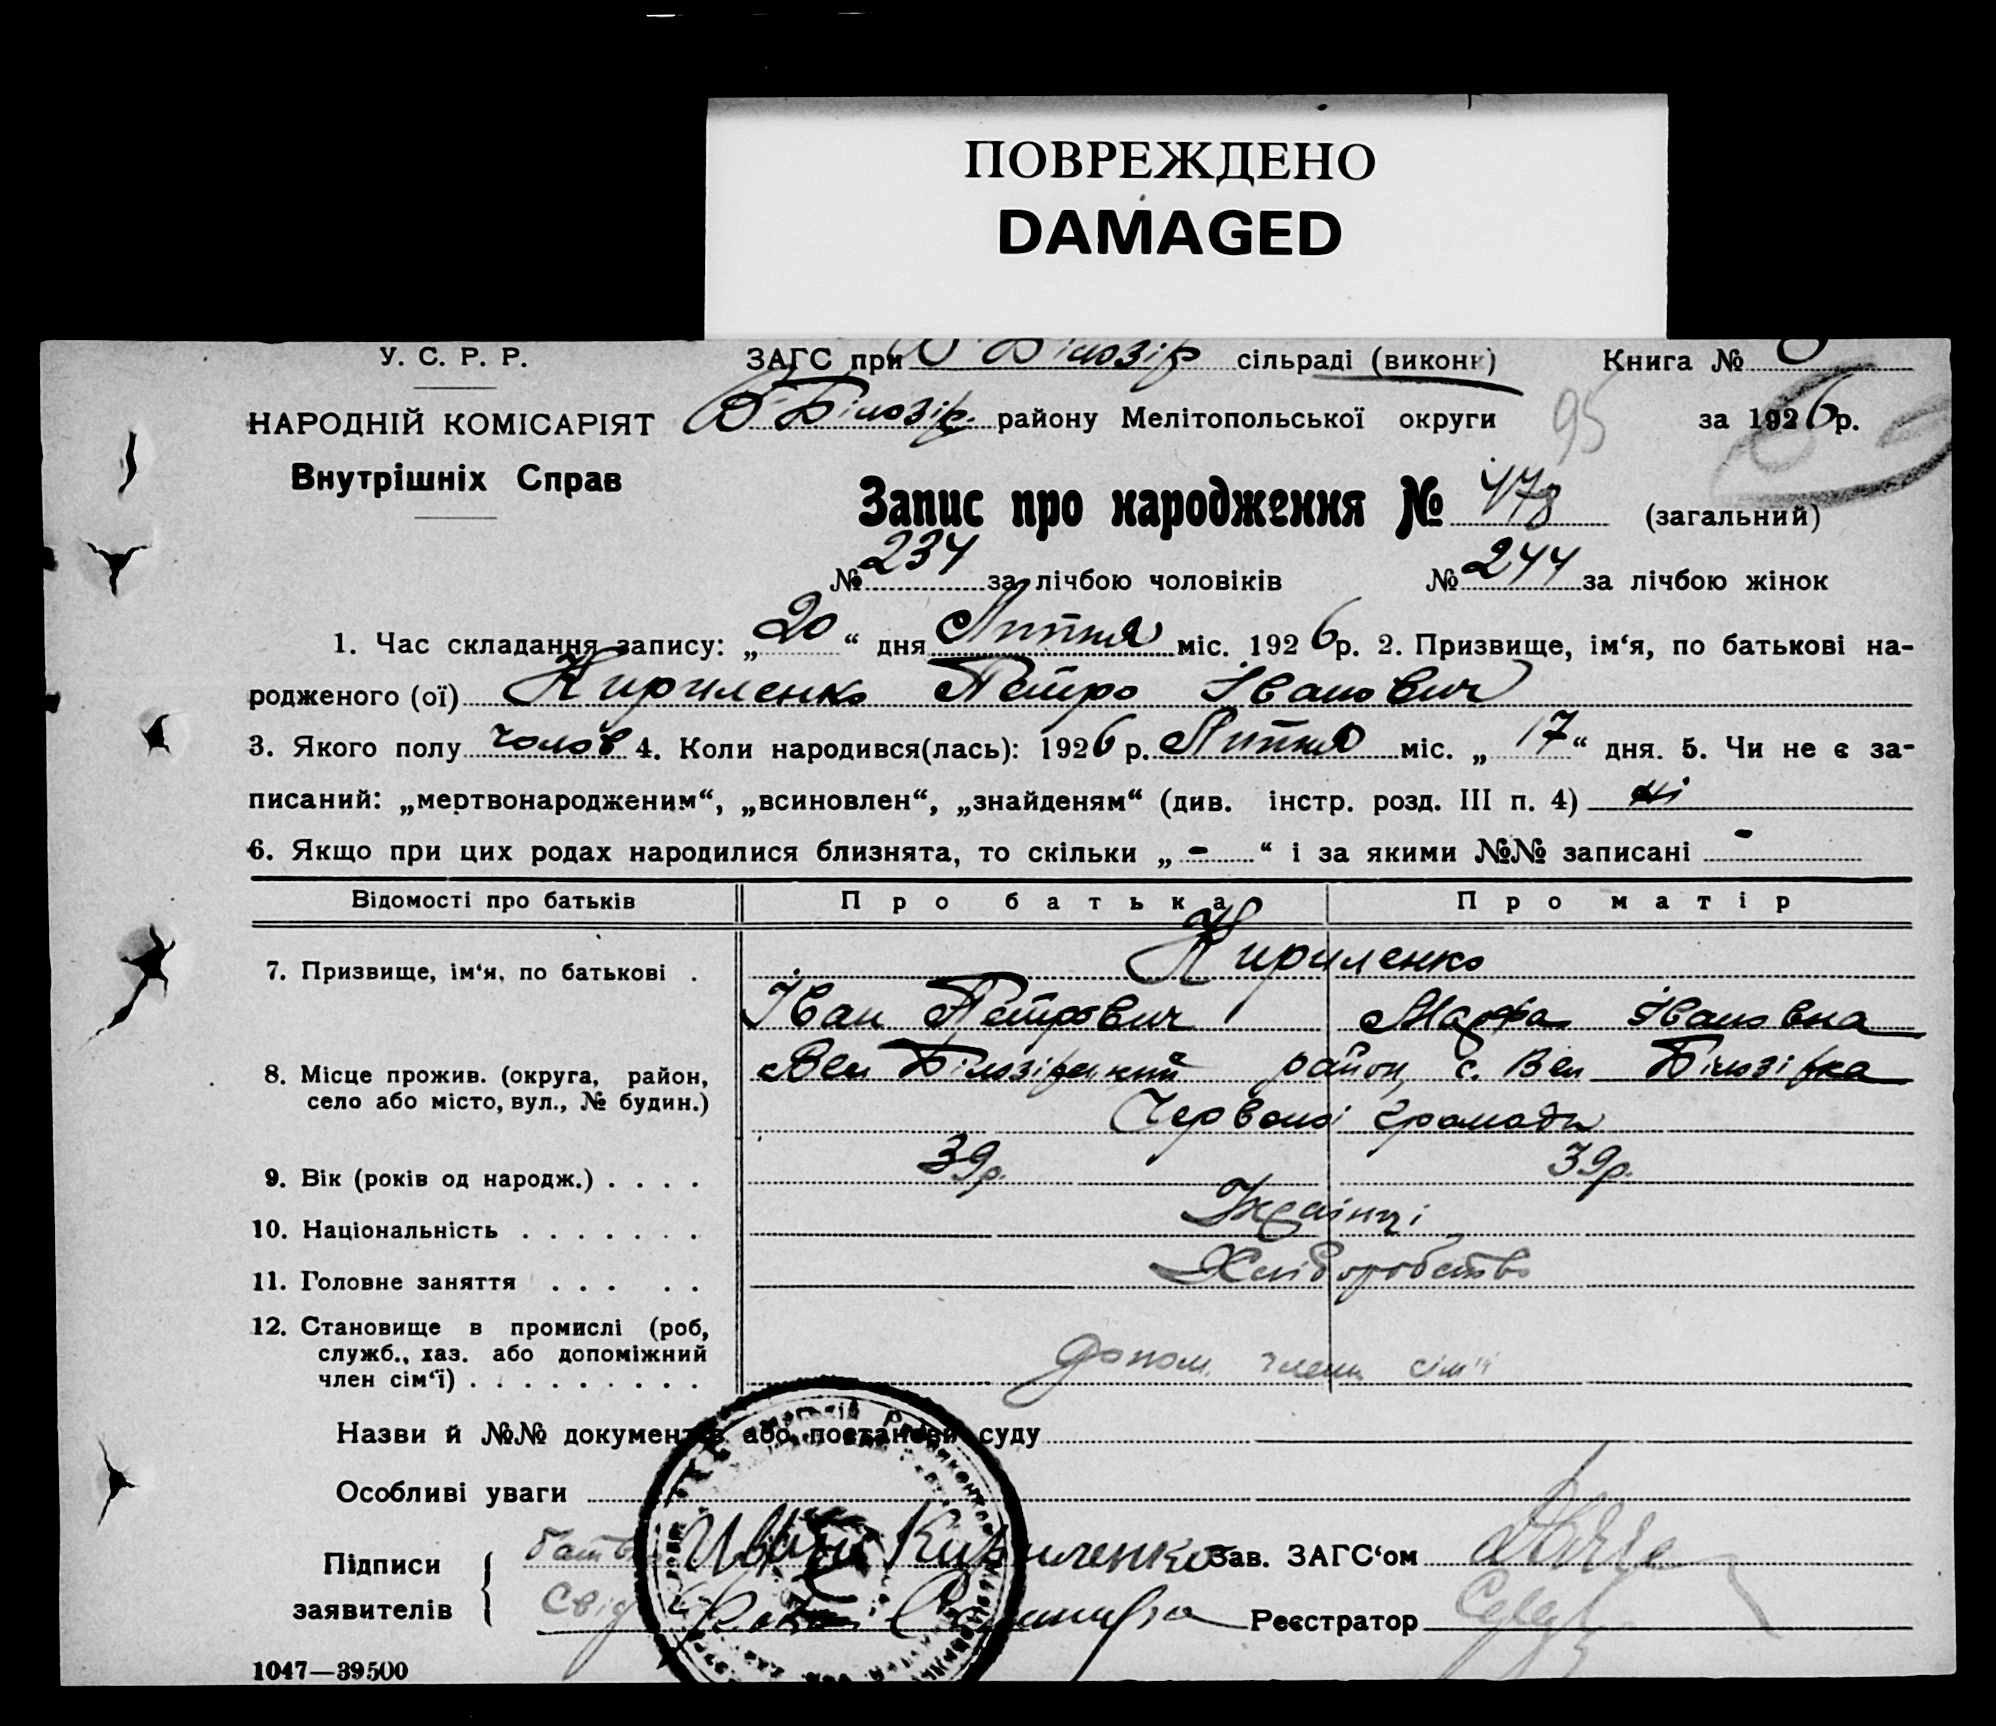 ПОВРЕЖДЕНО
DAMAGED
У. С. Р. Р.
ЗАГС при В Білозір сільраді (виконк)
Книга №
НАРОДНІЙ КОМІСАРІЯТ
Внутрішніх Справ
В-Білозір. району Мелітопольської округи
95
за 1926 р.
Запис про народження № 478 (загальний)
№ 234 за лічбою чоловіків № 244 за лічбою жінок
1. Час складання запису: „20“ дня Липня міс. 1926 р. 2. Призвище, ім‘я, по батькові на-
родженого (ої) Кириленко Петро Іванович
3. Якого полу чолов 4. Коли народився(лась): 1926 р. Липня міс. „17“ дня. 5. Чи не є за-
писаний: „мертвонародженим“, „всиновлен“, „знайденям“ (див. інстр. розд. III п. 4) ні
6. Якщо при цих родах народилися близнята, то скільки „-“ і за якими №№ записані -
Відомості про батьків Про батька Про матір
7. Призвище, ім‘я, по батькові . Кириленко
Іван Петрович Марфа Івановна
8. Місце прожив. (округа, район, село або місто, вул., № будин.) Вел Білозірский район с. Вел Білозірка
Червоної громади
9. Вік (років од народж.) . . . . 39 р. 39 р.
10. Національність . . . . . . . Українці
11. Головне заняття . . . . . Хліборобство
12. Становище в промислі (роб, служб., хаз. або допоміжний член сім‘ї) . . . . . . . . . допом. члени сім'ї
Назви й №№ документів або постанови суду
Особливі уваги
Підписи заявителів
Иван Кириленко
Зав. ЗАГС‘ом
Свід
Реєстратор
1047—39500